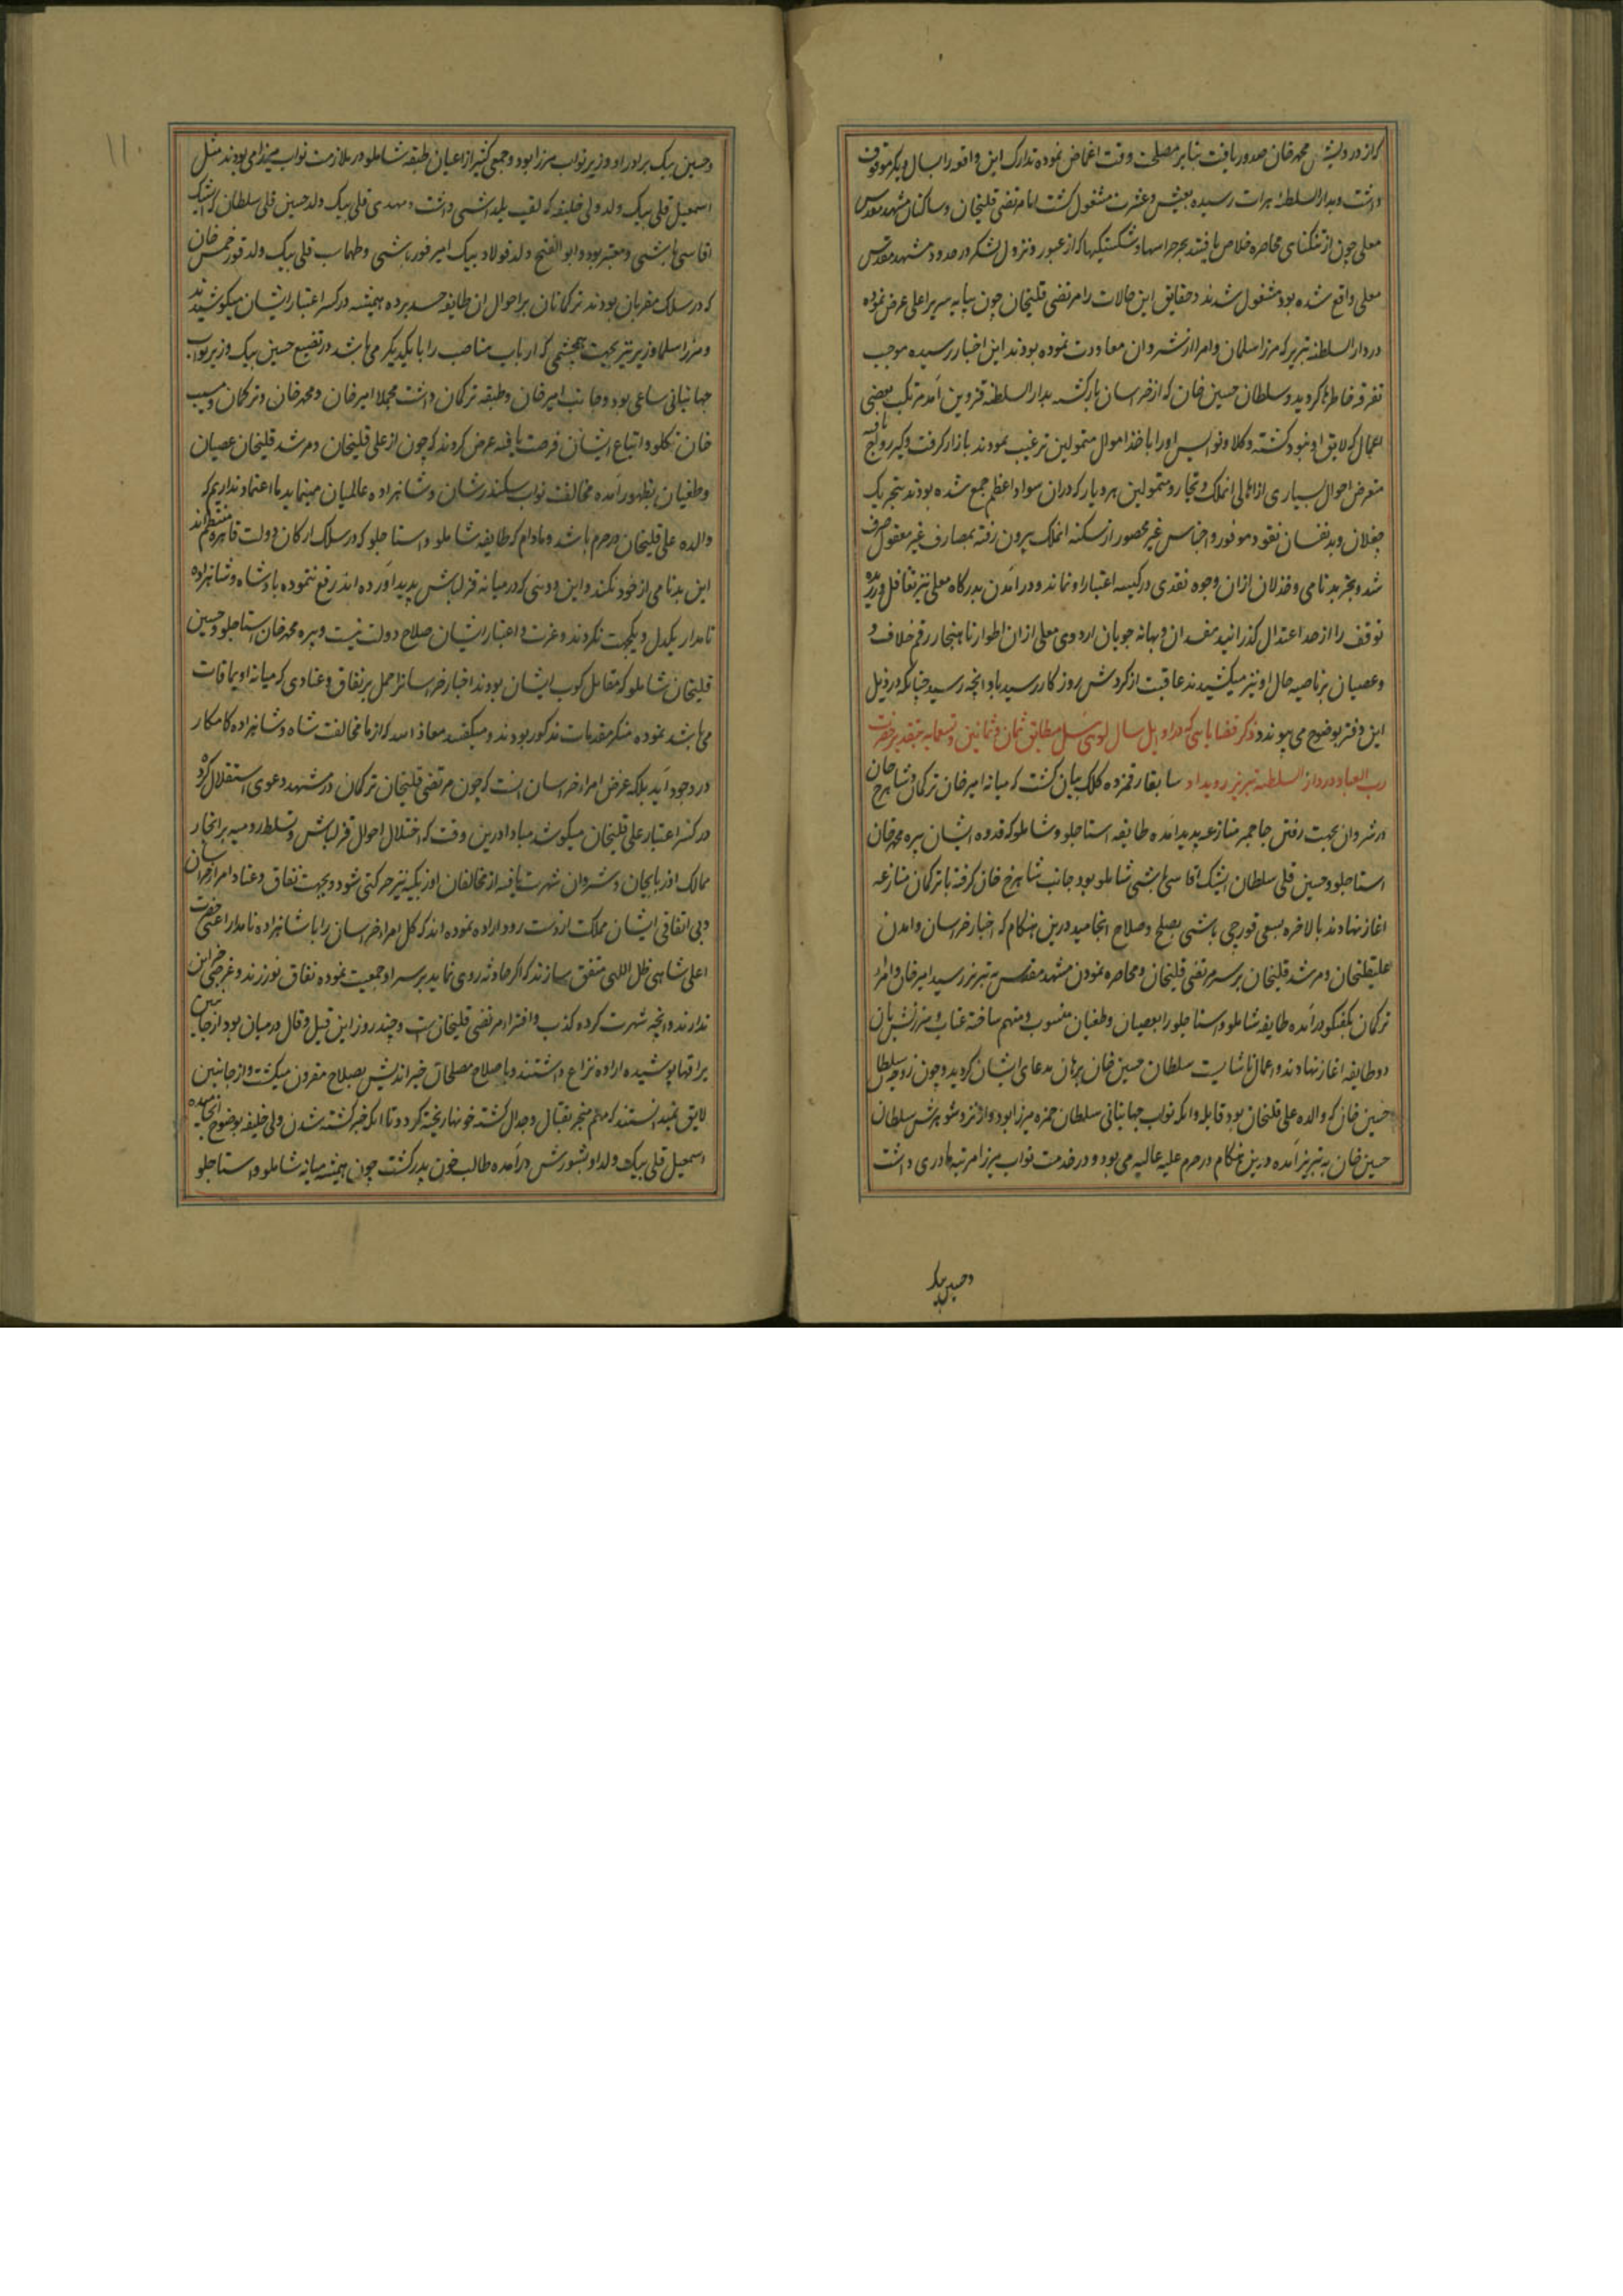 که از درویش محمد خان صدور یافت بنابر مصلحت وقت اغماض نموده تدارک این واقعه را بسال دیگر موقوف
داشت و بدار السلطنه هرات رسیده بعیش و عشرت مشغول گشت اما مرتضی قلیخان و ساکنان مشهد مقدس
معلی چون از تنکنای محاصره خلاص یافتند بجبر جراحتها و شکستگیها که از عبور و نزول لشکر در حدود مشهد مقدس
معلی واقع شده بود مشغول شدند و حقایق این حالات را مرتضی قلیخان چون بپایه سریر اعلی عرض نموده
در دار السلطنه تبریز که مرزا سلمان و امرا از شروان معاودت نموده بودند این اخبار رسیده موجب
تفرقه خاطرها کردید و سلطان حسین خان که از خراسان بازگشته بدار السلطنه قزوین آمد مرتکب بعضی
اعمال که لایق او نبود گشته وکلا و نویس او را باخذ اموال متمولین ترغیب نمودند بازار گرفت و گیر رواج یافته
متعرض احوال بسیاری از اهالی انملک و تجار و متمولین هر دیار که در ان سواد اعظم جمع شده بودند بتحریک
مغلان و بدنفسان نقود موفور و اجناس غیر محصور از سکنه انملک بیرون رفته بمصارف غیر معقول صرف
شد و بجز بدنامی و خذلان ازان وجوه نقدی در کیسه اعتبار او نماند و در آمدن بدرکاه معلی نیز تغافل ورزیده
توقف را از حد اعتدال گذرانید مفسدان و بهانه جویان اردوی معلی ازان اطوار ناهنجار رقم خلاف و
و عصیان بر ناصیه حال او نیز میکشیدند عاقبت از گردش روزگار رسید باو انچه رسید چنانکه در ذیل
این دفتر بوضوح می پیوندد ذکر قضایائی که در اوایل سال لوی ئیل مطابق ثمان و ثمانین و تسعمایه بتقدیر حضرت
رب العباد در دار السلطنه تبریز رویداد سابقا رقمزده کلک بیان گشت که میانه امیر خان ترکمان و شاهرخ خان
در شروان بجهت رفتن جاجمه منازعه پدید آمده طایفه استاجلو و شاملو که قدوه ایشان پیره محمد خان
استاجلو و حسین قلی سلطان ایشک اقاسی باشی شاملو بود جانب شاهرخ خان گرفته با ترکمان منازعه
اغاز نهادند بالاخره بسعی قورچی باشی بصلح و صلاح انجامید درین هنگام که اخبار خراسان و امدن
علیقلیخان و مرشد قلیخان بر سر مرتضی قلیخان و محاصره نمودن مشهد مقدس به تبریز رسید امیر خان و امراء
ترکمان بگفتگو درآمده طایفه شاملو و استاجلو را بعصیان و طغیان منسوب و متهم ساخته عتاب و سرزنش بان
دو طایفه اغاز نهادند و اعمال ناشایست سلطان حسین خان برهان مدعای ایشان کردید و چون زوجه سلطان
حسین خان که والده علی قلیخان بود قابله و انکه نواب جهانبانی سلطان حمزه میرزا بود و از نزد شوهرش سلطان
حسین خان به تبریز آمده درین هنگام در حرم علیه عالیه می بود و در خدمت نواب میرزا مرتبه مادری داشت
و حسین بیک
۱۱۰
و حسین بیک برادر او وزیر نواب مرزا بود و جمعی کثیر از اعیان طبقه شاملو در ملازمت نواب میرزا می بودند مثل
اسمعیل قلی بیک ولد ولی خلیفه که لقب یلداشی داشت و مهدی قلی بیک ولد حسین قلی سلطان که ایشک
اقاسی باشی و معتبر بود و ابو الفتح ولد فولاد بیک امیر قورباشی و طهماسب قلی بیک ولد قورخمس خان
که در سلک مقربان بودند ترکمانان بر احوال ان طایفه حسد برده همیشه در کسر اعتبار ایشان میکوشیدند
و مرزا سلمان وزیر نیز بجهت همچشمی که ارباب مناصب را با یکدیگر می باشد در تضییع حسین بیک وزیر نواب
جهانبانی ساعی بود و جانب امیر خان و طبقه ترکمان داشت مجملا امیر خان و محمد خان و ترکمان و مسیب
خان تکلو و اتباع ایشان فرصت یافته عرض کردند که چون از علی قلیخان و مرشد قلیخان عصیان
و طغیان بظهور آمده مخالفت نواب سکندر شان و شاهزاده عالمیان مینماید ما اعتماد نداریم که
والده علی قلیخان در حرم باشد و مادام که طایفه شاملو و استاجلو که در سلک ارکان دولت قاهره منتظم اند
این بدنامی از خود نکنند و این دوئی که در میانه قزلباش پدید آورده اند رفع ننموده با پادشاه و شاهزاده
نامدار یکدل و یکجهت نگردند و عزت و اعتبار ایشان صلاح دولت نیست و پیره محمد خان استاجلو و حسین
قلیخان شاملو که مقابل کوب ایشان بودند اخبار خراسانرا حمل بر نفاق و عنادی که میانه اویماقات
می باشد نموده منکر مقدمات مذکور بودند و میگفتند معاذ الله که از ما مخالفت شاه و شاهزاده کامکار
در وجود آید بلکه غرض امراء خراسان انست که چون مرتضی قلیخان ترکمان در مشهد دعوی استقلال کرده
در کسر اعتبار علی قلیخان میکوشد مبادا درین وقت که اختلال احوال قزلباش و تسلط رومیه بر انجار
ممالک اذربایجان و شروان شهرت یافته از مخالفان اوزبکیه نیز حرکتی شود و بجهت نفاق و عناد امراء خراسان
و بی اتفاقی ایشان مملکت از دست رود اراده نموده اند که کل امراء خراسان را با شاهزاده نامدار اعنی حضرت
اعلی شاهی ظل اللهی متفق سازند که اگر حادثه روی نماید بر سر او جمعیت نموده نفاق نورزند و غرضی جز این
ندارند و انچه شهرت کرده کذب و افترا مرتضی قلیخان ست و چند روز این قیل و قال در میان بود از جانبین
یراقها پوشیده اراده نزاع داشتند و باصلاح مصلحان خیر اندیش بصلاح مقرون میکشت و از جانبین
لایق نمیدانستند که مهم منجر بقتال و جدال گشته خونها ریخته گردد تا انکه خبر کشته شدن ولی خلیفه بوضوح انجامیده
اسمعیل قلی بیک ولد او بشورش درآمده طالب خون پدر گشت چون همیشه میانه شاملو و استاجلو